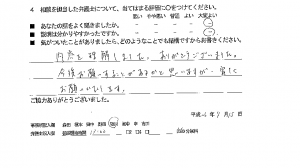 4 相談を担当した弁護士について、当てはまる評価に○をつけてください。
悪い やや悪い 普通 よい 大変よい
■ あなたの話をよく聞きましたか。
■ 説明は分かりやすかったですか。
■ 気がついたことがありましたら、どのようなことでも結構ですからお書きください。
内容を理解しました。ありがとうございました。
今後お願いすることがあると思いますが、宜しく
お願いいたします。
ご協力ありがとうございました。
平成 年 9月15日